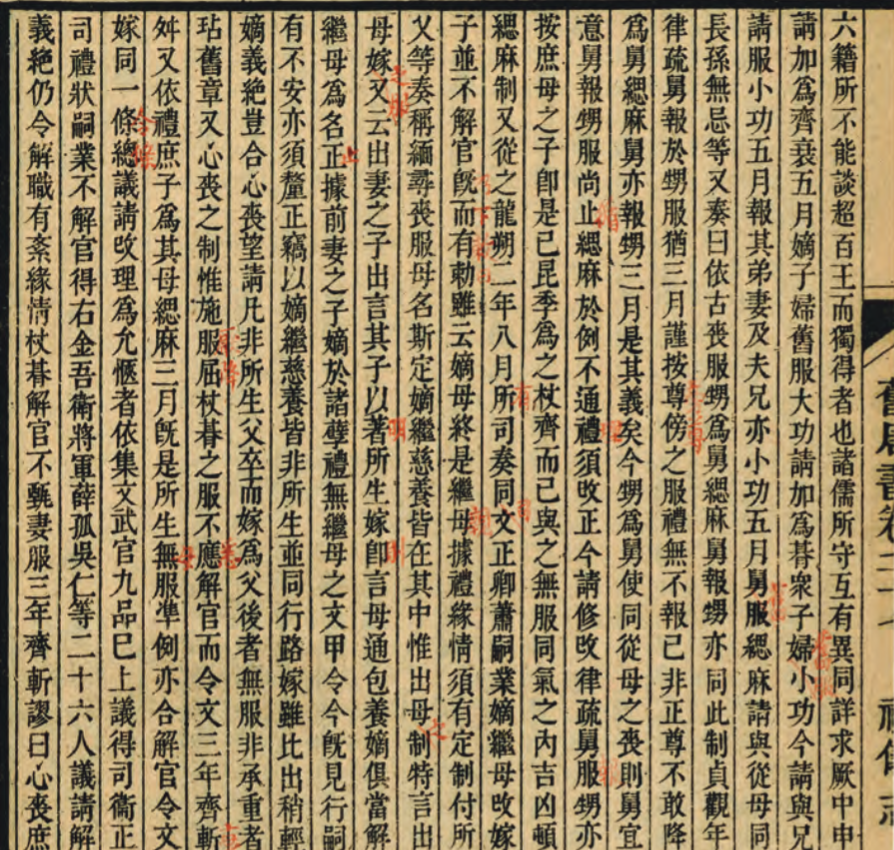 六籍所不能談超百王而獨得者也諸儒所守互有異同詳求厥中申
請加爲齊衰五月嫡子婦舊服大功請加爲朞衆子婦小功今請與兄
請服小功五月報其弟妻及夫兄亦小功五月舅服緦麻請與從母同
長孫無忌等又奏曰依古喪服甥爲舅緦麻舅報甥亦同此制貞觀年
律疏舅報於甥服猶三月謹按尊傍之服禮無不報已非正尊不敢降
爲舅緦麻舅亦報甥三月是其義矣今甥爲舅使同從母之喪則舅宜
意舅報甥服尚止緦麻於例不通禮須改正今請修改律疏舅服甥亦
按庶母之子卽是已昆季爲之杖齊而已與之無服同氣之內吉凶頓
緦麻制又從之龍朔二年八月所司奏同文正卿蕭嗣業嫡繼母改嫁
子並不解官旣而有勅雖云嫡母終是繼母據禮緣情須有定制付所
父等奏稱緬尋喪服母名斯定嫡繼慈養皆在其中惟出母制特言出
母嫁又云出妻之子出言其子以著所生嫁卽言母通包養嫡俱當解
繼母爲名正據前妻之子嫡於諸孽禮無繼母之文甲令今旣見行嗣
有不安亦須釐正竊以嫡繼慈養皆非所生並同行路嫁雖比出稍輕
嫡義絶豈合心喪望請凡非所生父卒而嫁爲父後者無服非承重者
玷舊章又心喪之制惟施服屈杖朞之服不應解官而令文三年齊斬
舛又依禮庶子爲其母緦麻三月旣是所生無服準例亦合解官令文
嫁同一條總議請改理爲允愜者依集文武官九品已上議得司衞正
司禮狀嗣業不解官得右金吾衛將軍薛孤吳仁等二十六人議請解
義絶仍令解職有紊緣情杖朞解官不甄妻服三年齊斬謬曰心喪庶
舊唐書卷二十七
禮儀志